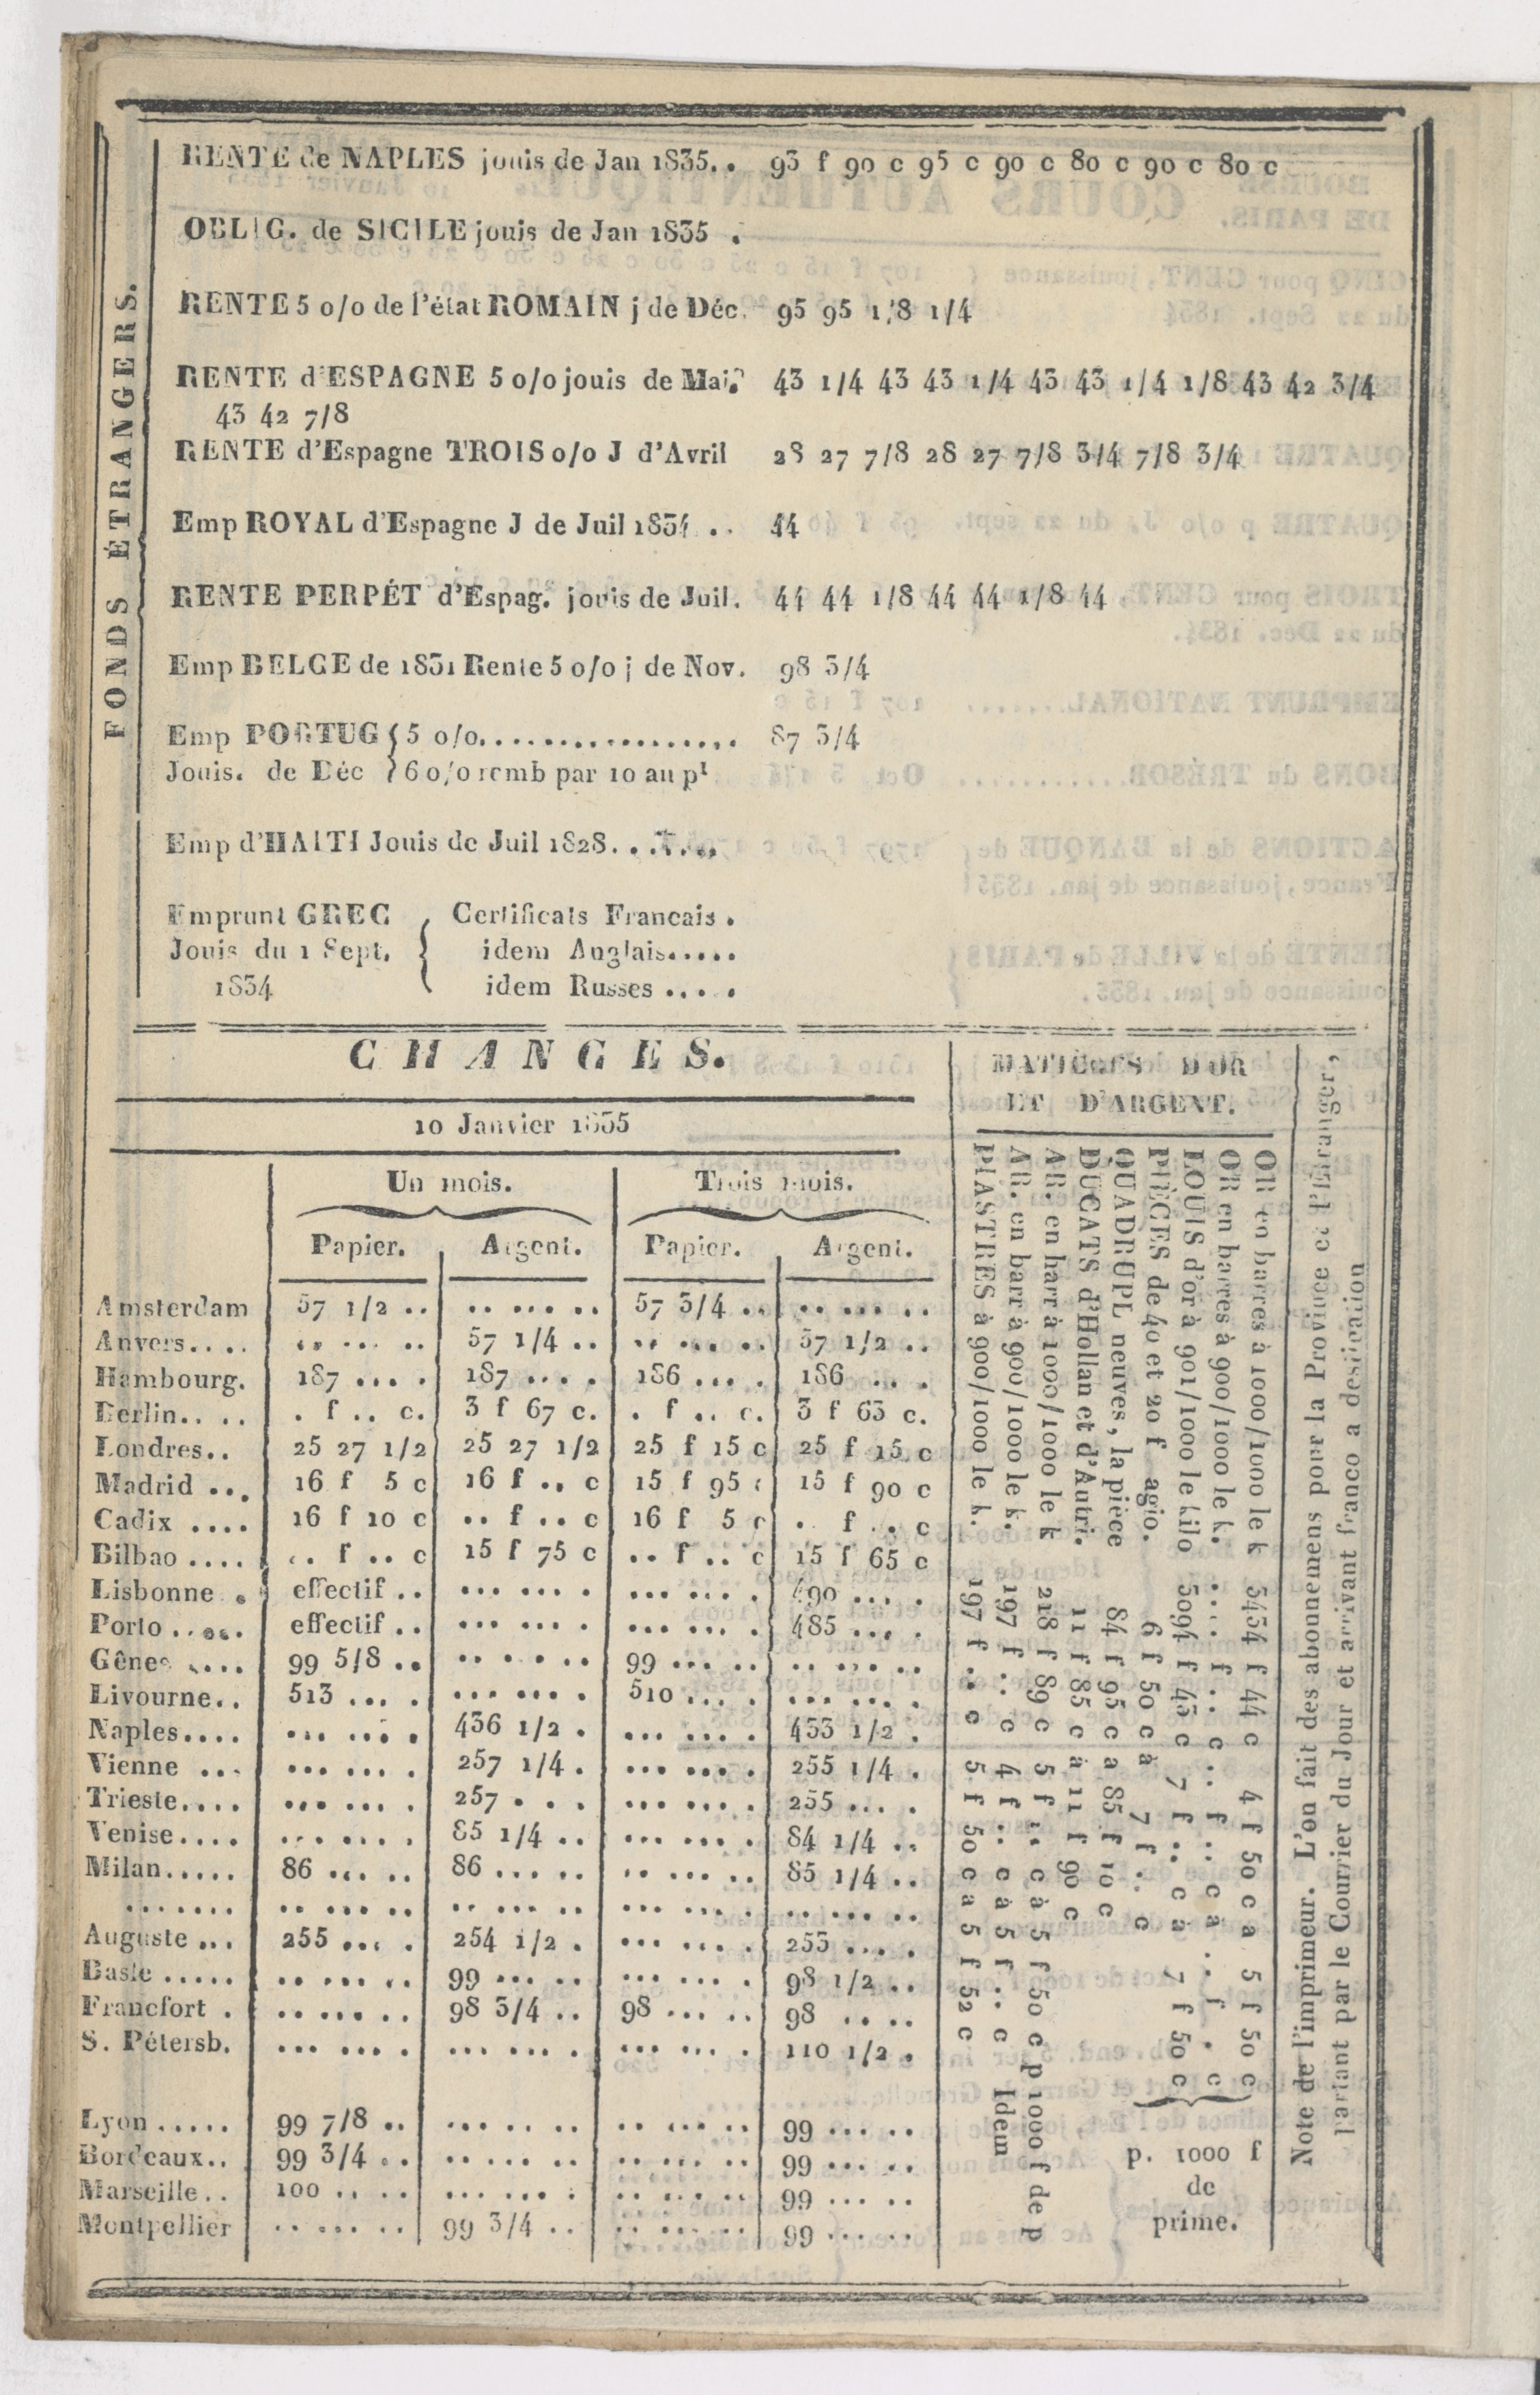 FONDS ÉTRANGERS.
RENTE de NAPLES jouis de Jan 1835. . 93 f 90 c 95 c 90 c 80 c 90 c 80 c
OBLIG. de SICILE jouis de Jan 1835 .
RENTE 5 o/o de l'état ROMAIN j de Déc. 95 95 1/8 1/4
RENTE d'ESPAGNE 5 o/o jouis de Mai. 43 1/4 43 43 1/4 43 43 1/4 1/8 43 42 3/4
43 42 7/8
RENTE d'Espagne TROIS o/o J d'Avril 28 27 7/8 28 27 7/8 3/4 7/8 3/4
Emp ROYAL d'Espagne J de Juil 1834 . . 44
RENTE PERPÉT d'Espag. jouis de Juil. 44 44 1/8 44 44 1/8 44
Emp BELGE de 1831 Rente 5 o/o j de Nov. 98 3/4
Emp PORTUG { 5 o/o. . . . . . . . . . . . . . . . . 87 3/4
Jouis. de Déc } 6 o/o remb par 10 au pl
Emp d'HAITI Jouis de Juil 1828. . . . . . .
Emprunt GREC { Certificats Francais .
Jouis du 1 Sept. idem Anglais. . . . .
1834 idem Russes . . . .
CHANGES.
10 Janvier 1835
Un mois. Trois mois.
Papier. Argent. Papier. Argent.
Amsterdam 57 1/2 .. .. ... .. 57 3/4 .. .. ... ..
Anvers.... .. ... .. 57 1/4 .. .. ... .. 57 1/2 ..
Hambourg. 187 ... . 187 ... . 186 ... . 186 ... .
Berlin.. .. . f .. c. 3 f 67 c. . f .. c. 3 f 63 c.
Londres.. 25 27 1/2 25 27 1/2 25 f 15 c 25 f 15 c
Madrid ... 16 f 5 c 16 f .. c 15 f 95 c 15 f 90 c
Cadix .... 16 f 10 c .. f .. c 16 f 5 c . f .. c
Bilbao .... .. f .. c 15 f 75 c .. f .. c 15 f 65 c
Lisbonne . effectif .. ... ... . ... ... . 490 ... .
Porto ..... effectif .. ... ... . ... ... . 485 ... .
Gênes .... 99 5/8 .. .. .. .. 99 ... .. .. ... ..
Livourne.. 513 ... . ... ... . 510 ... . ... ... .
Naples.... ... ... . 436 1/2 . ... ... . 433 1/2 .
Vienne ... ... ... . 257 1/4 . ... ... . 255 1/4 .
Trieste.... ... ... . 257 . . . ... ... . 255 ... .
Venise.... ... ... . 85 1/4 .. ... ... . 84 1/4 ..
Milan..... 86 ... .. 86 ... .. .. ... .. 85 1/4 ..
....... .. ... .. .. ... .. ... ... . .. ... ..
Auguste ... 255 ... . 254 1/2 . ... ... . 253 ... .
Basle ..... .. ... .. 99 ... .. ... ... . 98 1/2 ..
Francfort . .. ... .. 98 3/4 .. 98 ... .. 98 .. ..
S. Pétersb. ... ... . ... ... . ... ... . 110 1/2 .
Lyon ..... 99 7/8 .. ... .. .. .. ... .. 99 ... ..
Bordeaux.. 99 3/4 .. .. ... .. .. ... .. 99 ... ..
Marseille.. 100 .. .. ... ... . .. ... .. 99 ... ..
Montpellier .. ... .. 99 3/4 .. .. ... .. 99 ... ..
MATIÈRES D'OR
ET D'ARGENT.
OR en barres à 1000/1000 le k 3434 f 44 c 4 f 50 c a 5 f 50 c
OR en barres à 900/1000 le k. .... f .. c .. f .. c à .. f . c
LOUIS d'or à 901/1000 le kilo 3094 f 43 c 7 f .. c à 7 f 50 c
PIÈCES de 40 et 20 f agio. 6 f 50 c à 7 f .. c
QUADRUPL neuves, la pièce 84 f 95 c a 85 f 10 c
DUCATS d'Hollan et d'Autri. 11 f 85 c à 11 f 90 c
AR. en barr à 1000/1000 le k 218 f 89 c 5 f .. c à 5 f 50 c p 1000 f de p
AR. en barr à 900/1000 le k. 197 f .. c 4 f .. c à 5 f .. c Idem
PIASTRES à 900/1000 le k. 197 f .. c 5 f 50 c a 5 f 52 c
p. 1000 f
de
prime.
Note de l'imprimeur. L'on fait des abonnemens pour la Province et l'Étranger,
partant par le Courrier du Jour et arrivant franco a destination